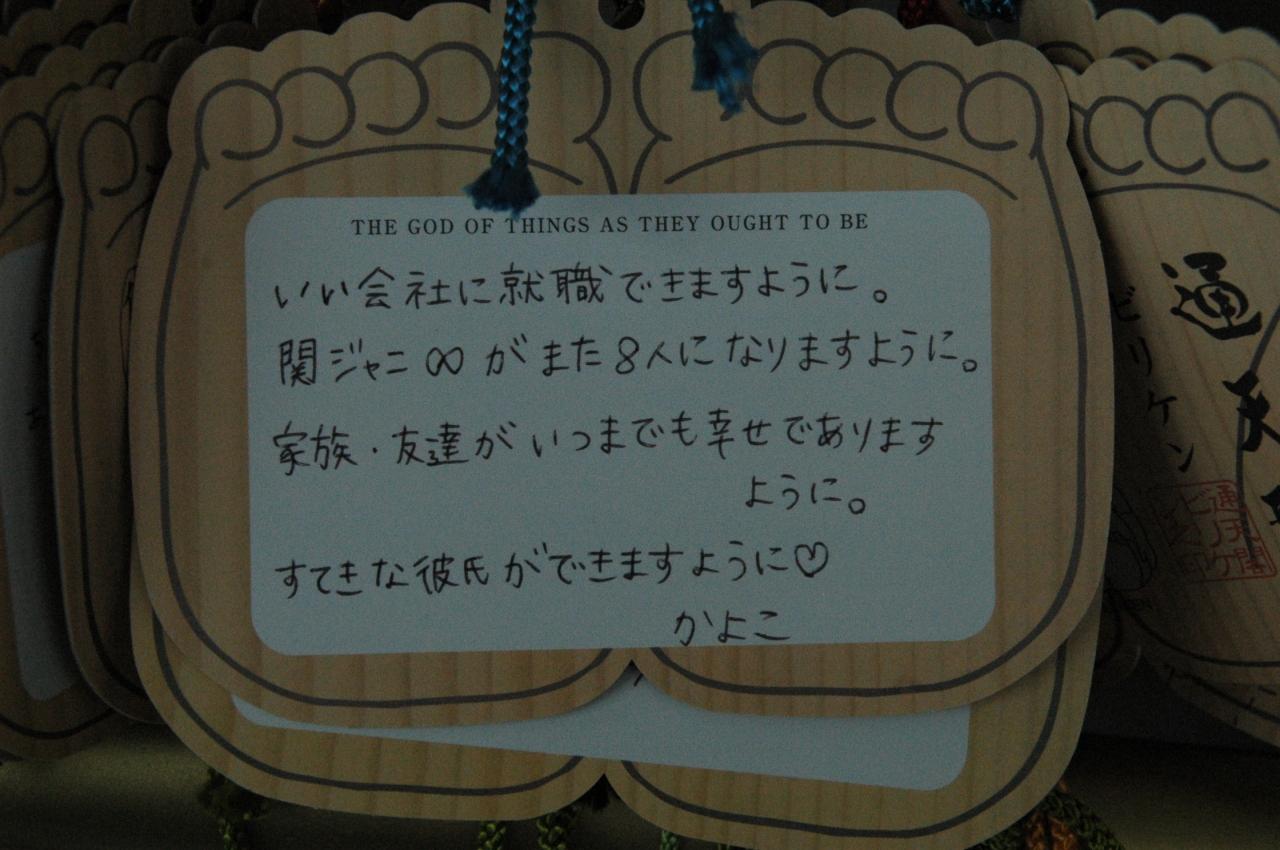 THE GOD OF THINGS AS THEY OUGHT TO BE
いい会社に就職できますように。
関ジャニ∞がまた8人になりますように。
家族・友達がいつまでも幸せであります
ように。
すてきな彼氏ができますように♡
かよこ
通天
ビリケン